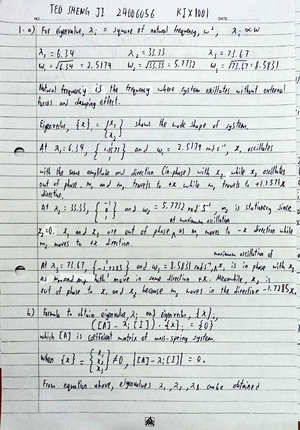 TEO SHENG JI 24006056 KIX1001
NO. DATE:
1. a) For eigenvalue, λi = square of natural frequency, ω², λi ∝ ω
λ1 = 6.34 λ2 = 33.33 λ3 = 73.67
ω1 = √6.34 = 2.5179 ω2 = √33.33 = 5.7732 ω3 = √73.67 = 8.5831
Natural frequency is the frequency where system oscillates without external
forces and damping effect.
Eigenvector, {x}i = {x1 x2 x3} shows the mode shape of system.
At λ1 = 6.34, and ω1 = 2.5179 rad s⁻¹, x1 oscillates
with the same amplitude and direction (in-phase) with x3, while x2 oscillates
out of phase. m1 and m3 travels to +x while m2 travels to
direction.
At λ2 = 33.33, {-1 0 1} and ω2 = 5.7732 rad s⁻¹, m2 is stationary since
at maximum oscillation
x2=0. x1 and x3 are out of phase as m1 moves to -x direction while
m3 moves to +x direction.
maximum oscillation of
At λ3 = 73.67, and ω3 = 8.5831 rad s⁻¹, x1 is in phase with x3
as m1 and m3 both move in same direction +x. Meanwhile, x2 is
out of phase to x1 and x3 because m2 moves in the direction -1.7385x.
b) Formula to obtain eigenvalue λi and eigenvector, {x}i:
([A] - λi[I]) · {x}i = {0}
which [A] is coefficient matrix of mass-spring system.
When {x} = {x1 x2 x3} ≠ 0, |[A] - λi[I]| = 0.
From equation above, eigenvalues λ1, λ2, λ3 can be obtained